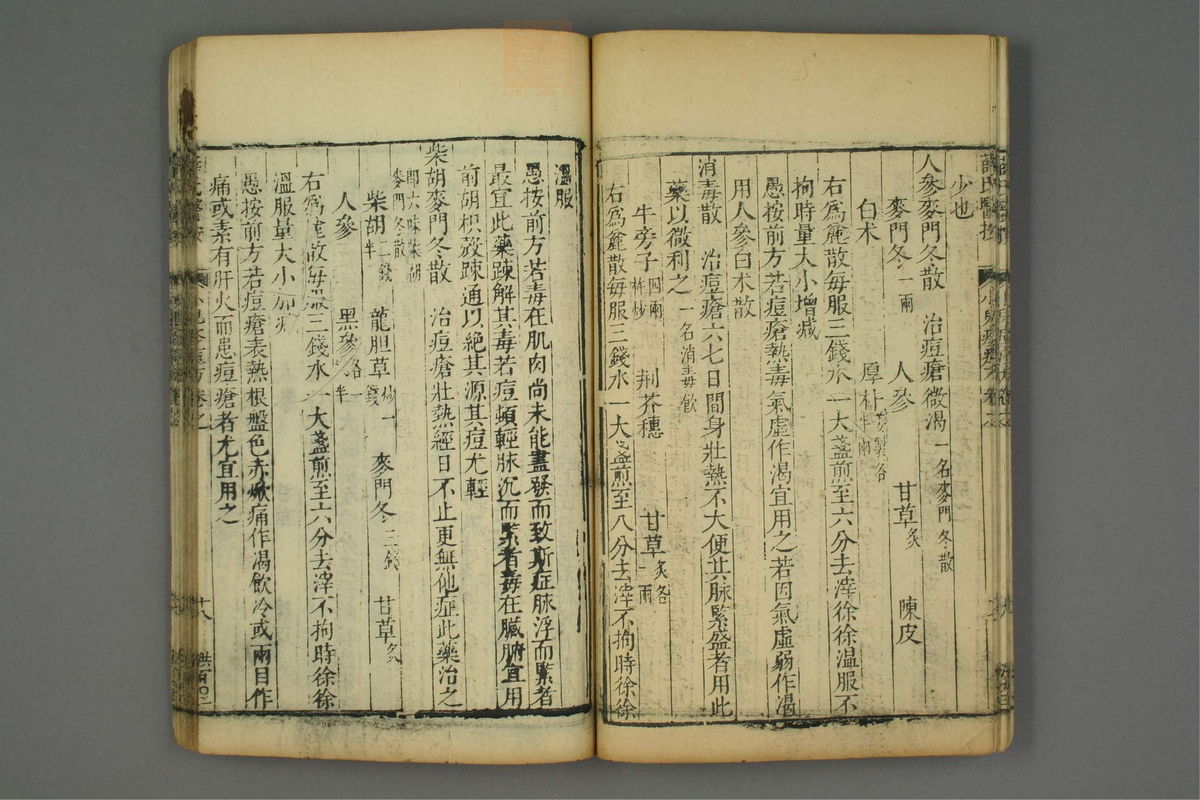 少也
人參麥門冬散 治痘瘡微渴一名麥門冬散
麥門冬一兩 人參 甘草炙 陳皮
白术 厚朴
右爲麄散每服三錢水一大盞煎至六分去滓徐徐温服不
拘時量大小增減
愚按前方若痘瘡熱毒氣虛作渴宜用之若因氣虛弱作渴
用人參白术散
消毒散 治痘瘡六七日間身壯熱不大便其脉緊盛者用此
藥以微利之一名消毒飲
牛旁子四兩杵炒 荆芥穗 甘草炙各一兩
右爲麄散每服三錢水一大盞煎至八分去滓不拘時徐徐
溫服
愚按前方若毒在肌肉尚未能盡發而致斯症脉浮而緊者
最宜此藥踈解其毒若痘頓輕脉沉而緊者毒在臟腑宜用
前胡枳殼踈通以絶其源其痘尤輕
柴胡麥門冬散 治痘瘡壯熱經日不止更無他症此藥治之
即六味柴胡麥門冬散
柴胡二錢半 龍胆草炒一錢 麥門冬三錢 甘草炙
人參 黑參各一錢半
右爲麄散每服三錢水一大盞煎至六分去滓不拘時徐徐
溫服量大小加減
愚按前方若痘瘡表熱根盤色赤焮痛作渴飲冷或兩目作
痛或素有肝火而患痘瘡者尤宜用之